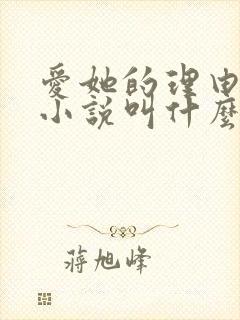 愛她的理由
小說叫什麼
蔣旭峰